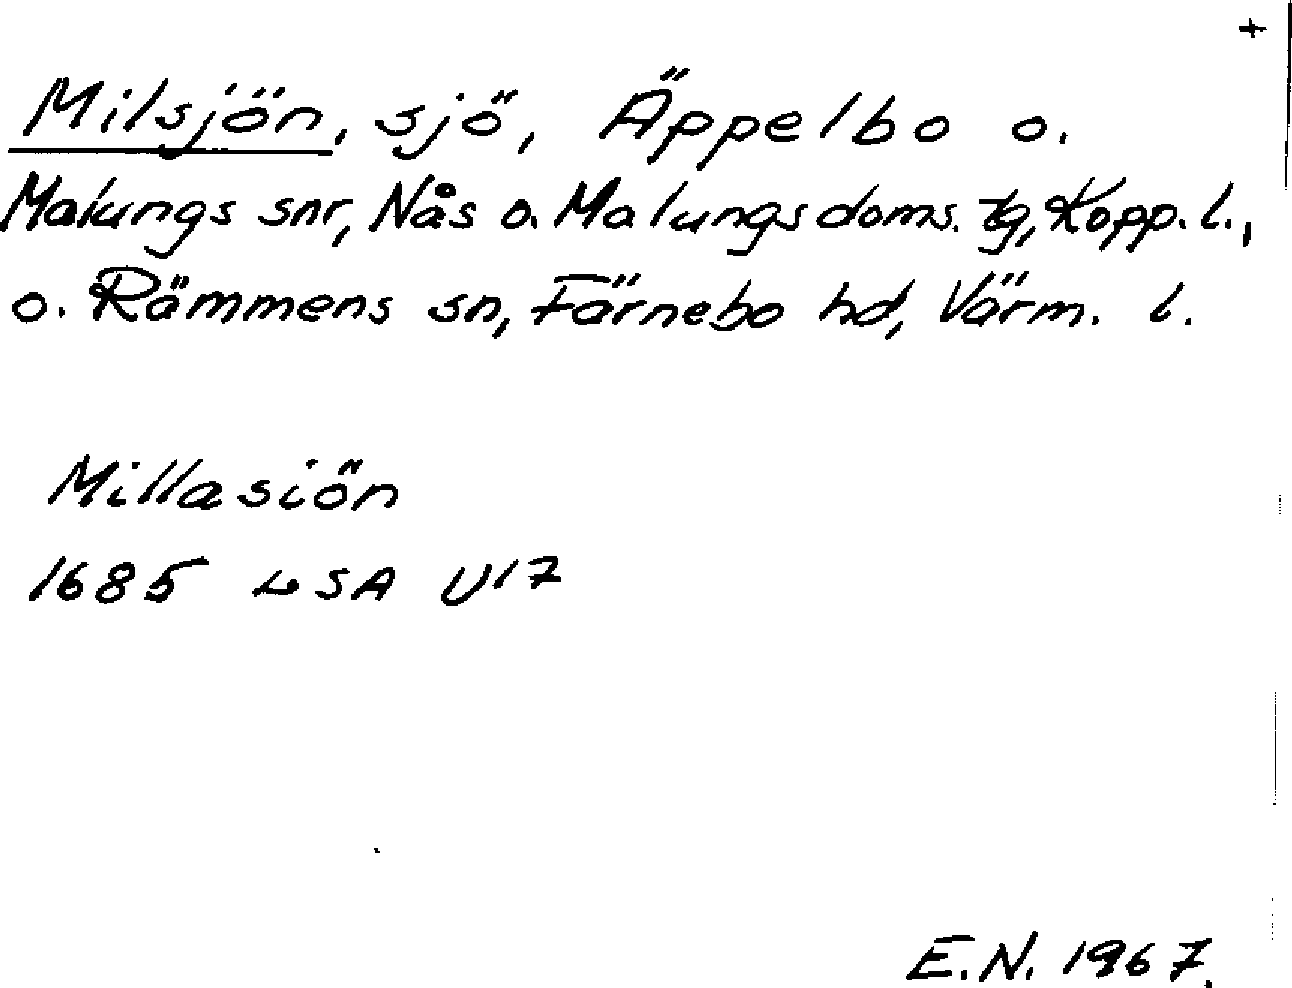 +
Milsjön, sjö, Äppelbo o.
Malungs snr, Nås o. Malungs doms. tg, Kopp. l.,
o. Rämmens sn, Färnebo hd, Värm. l.
Millasiön
1685 LSA U17
E.N. 1967.